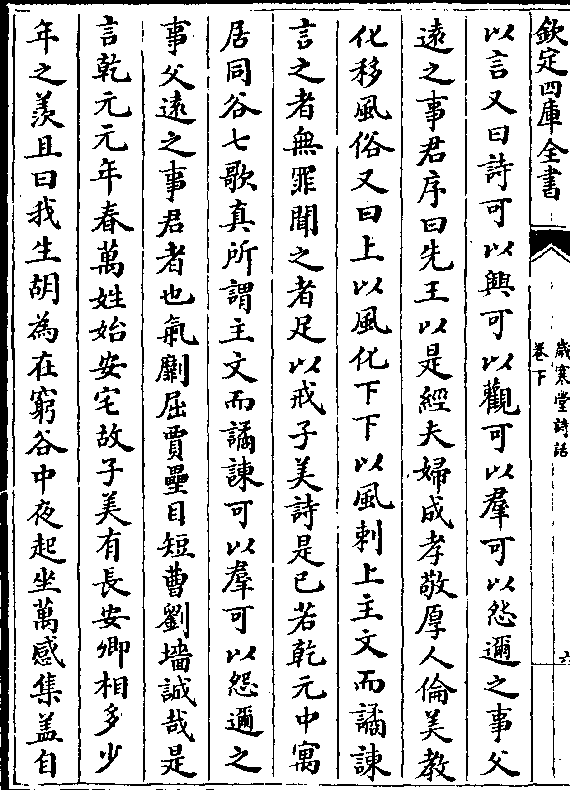 欽定四庫全書
歲寒堂詩話
卷下
六
以言又曰詩可以興可以觀可以羣可以怨邇之事父
遠之事君序曰先王以是經夫婦成孝敬厚人倫美教
化移風俗又曰上以風化下下以風刺上主文而譎諫
言之者無罪聞之者足以戒子美詩是已若乾元中寓
居同谷七歌真所謂主文而譎諫可以羣可以怨邇之
事父遠之事君者也氣劘屈賈壘目短曹劉墻誠哉是
言乾元元年春萬姓始安宅故子美有長安卿相多少
年之羨且曰我生胡為在窮谷中夜起坐萬感集盖自